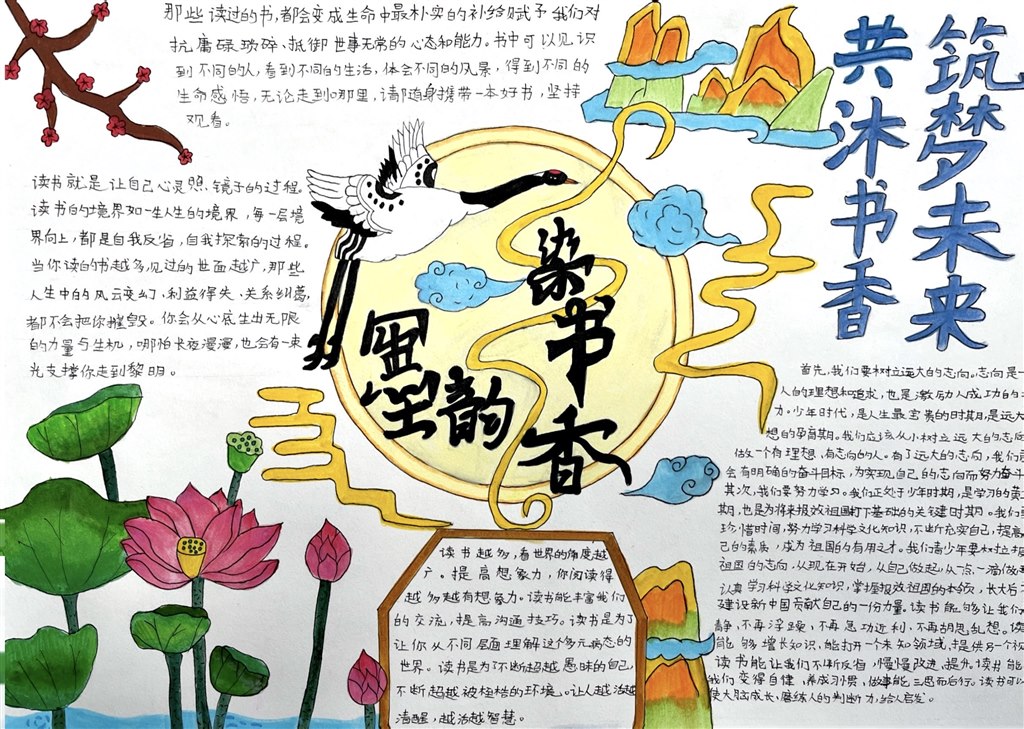 那些读过的书,都会变成生命中最朴实的补给赋予我们对
抗庸碌琐碎、抵御世事无常的心态和能力。书中可以见识
到不同的人,看到不同的生活,体会不同的风景,得到不同的
生命感悟,无论走到哪里,请都随身携带一本好书,坚持
观看。
筑梦未来
共沐书香
读书就是让自己心灵照镜子的过程。
读书的境界如一生人生的境界,每一层境
界向上,都是自我反省,自我探索的过程。
当你读的书越多,见过的世面越广,那些
人生中的风云变幻、利益得失、关系纠葛,
都不会把你摧毁。你会从心底生出无限
的力量与生机,哪怕长夜漫漫,也会有一束
光支撑你走到黎明。
染书香
墨韵
首先,我们要树立远大的志向。志向是一
人的理想和追求,也是激励人成功的
力。少年时代,是人生最宝贵的时期,是远大
想的孕育期。我们应该从小树立远大的志向
做一个有理想、有志向的人。有了远大的志向,我们
会有明确的奋斗目标,为实现自己的志向而努力奋斗
其次,我们要努力学习。我们正处于少年时期,是学习的黄
期,也是为将来报效祖国打下基础的关键时期。我们
珍惜时间,努力学习科学文化知识,不断充实自己,提高
己的素质,成为祖国的有用之才。我们青少年要树立报
祖国的志向,从现在开始,从自己做起,从一点一滴做
认真学习科学文化知识,掌握报效祖国的本领,长大后
建设新中国贡献自己的一份力量。读书能够让我们
静,不再浮躁,不再急功近利,不再胡思乱想。读
能够增长知识,能打开一个未知领域,提供另一个
读书能让我们不断反省,慢慢改进、提升。读书能
我们变得自律,养成习惯,做事能三思而后行。读书可以
使大脑成长、磨练人的判断力,给人启发。
读书越多,看世界的角度越
广。提高想象力,你阅读得
越多越有想象力。读书能丰富我们
的交流,提高沟通技巧。读书是为了
让你从不同层面理解这个多元病态的
世界。读书是为了不断超越愚昧的自己,
不断超越被桎梏的环境。让人越活越
清醒,越活越智慧。